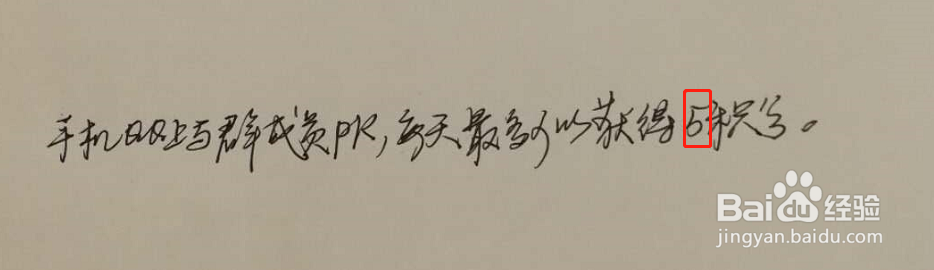 手机QQ上与群成员PK,每天最多可以获得5积分。
Baidu经验
jingyan.baidu.com